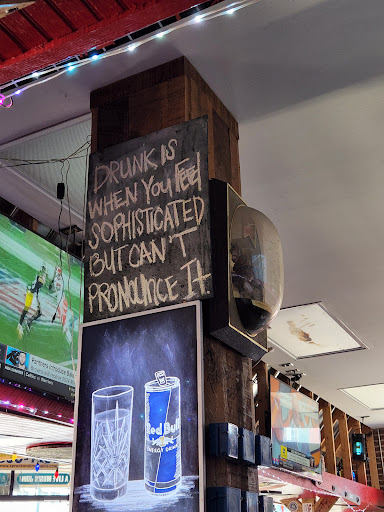 DRUNK IS
WHEN YOU FEEL
SOPHISTICATED
BUT CAN'T
PRONOUNCE IT.
Red Bull
ENERGY DRINK